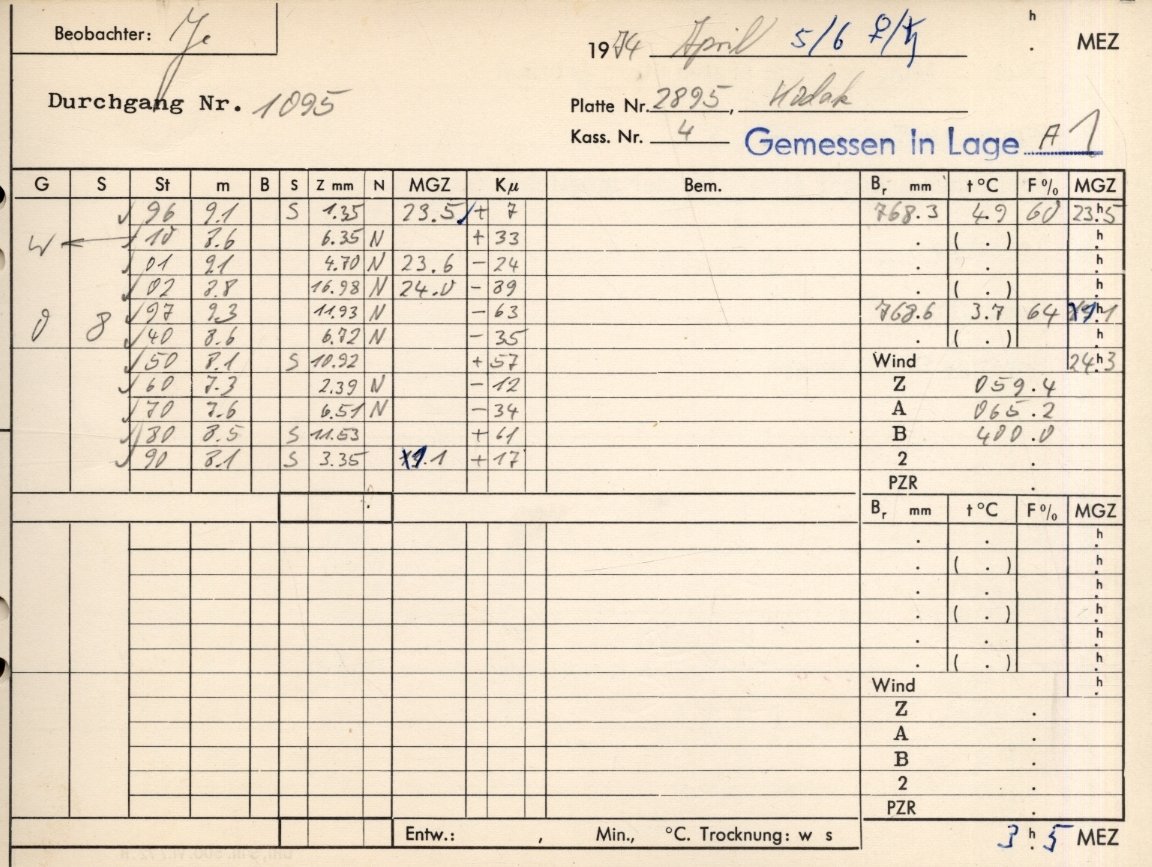 Beobachter: Je
1974 April 5/6 ♀/♄ h . MEZ
Durchgang Nr. 1095
Platte Nr. 2895, Kodak
Kass. Nr. 4 Gemessen in Lage A 1
G S St m B S Z mm N MGZ Kμ Bem. Br mm t °C F % MGZ
✓ 96 9.1 S 1.35 23.5 + 7 768.3 4.9 60 23h.5
W ← 10 8.6 6.35 N + 33 . ( . ) h.
✓ 01 9.1 4.70 N 23.6 - 24 . . h.
✓ 02 8.8 16.98 N 24.0 - 89 . ( . ) h.
0 8 ✓ 97 9.3 11.93 N - 63 768.6 3.7 64 h.1
✓ 40 8.6 6.72 N - 35 . ( . ) h.
✓ 50 8.1 S 10.92 + 57 Wind 24h.3
✓ 60 7.3 2.39 N - 12 Z 059.4
✓ 70 7.6 6.51 N - 34 A 065.2
✓ 80 8.5 S 11.53 + 61 B 400.0
✓ 90 8.1 S 3.35 .1 + 17 2 .
PZR .
Br mm t °C F % MGZ
. . h.
. ( . ) h.
. . h.
. ( . ) h.
. . h.
. ( . ) h.
Wind h.
Z .
A .
B .
2 .
PZR .
Entw.: , Min., °C. Trocknung: w s 3h.5 MEZ